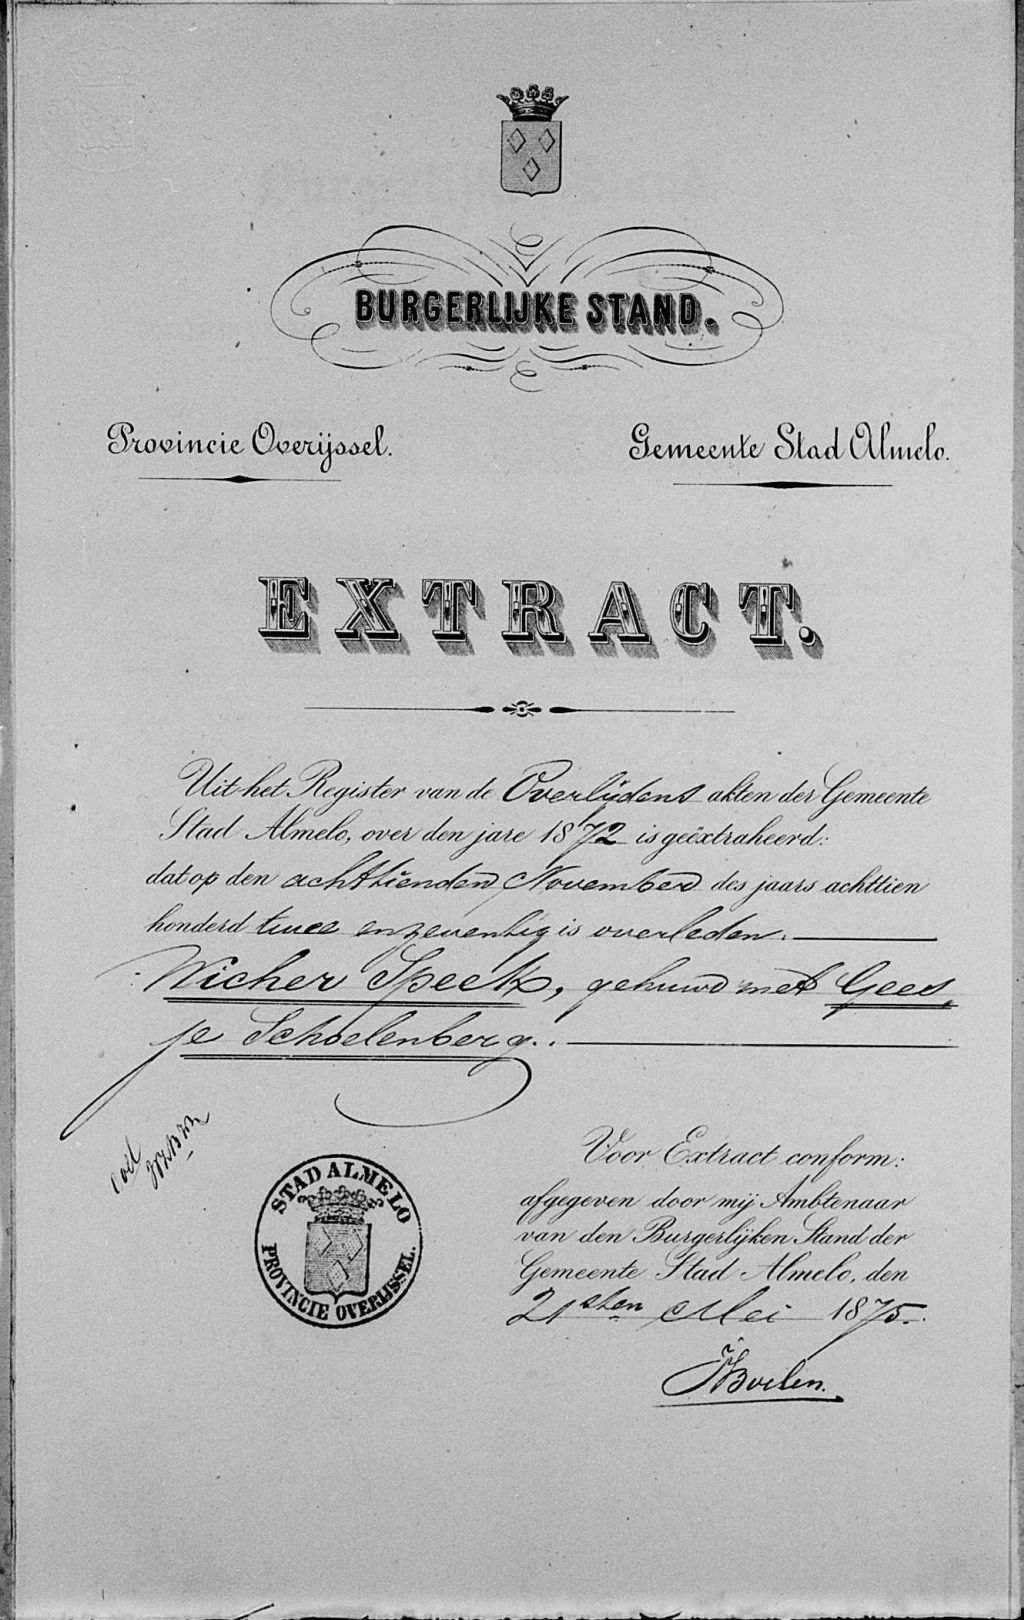 BURGERLIJKE STAND.
Provincie Overijssel.
Gemeente Stad Almelo.
EXTRACT.
Uit het Register van de Overlijdens akten der Gemeente
Stad Almelo, over den jare 1872 is geëxtraheerd:
dat op den achttienden November des jaars achttien
honderd twee en zeventig is overleden.
Wicher Speek, gehuwd met Gees,
je Schoelenberg.
STAD ALMELO
PROVINCIE OVERIJSSEL.
Voor Extract conform:
afgegeven door mij Ambtenaar
van den Burgerlijken Stand der
Gemeente Stad Almelo, den
21sten Mei 1875.